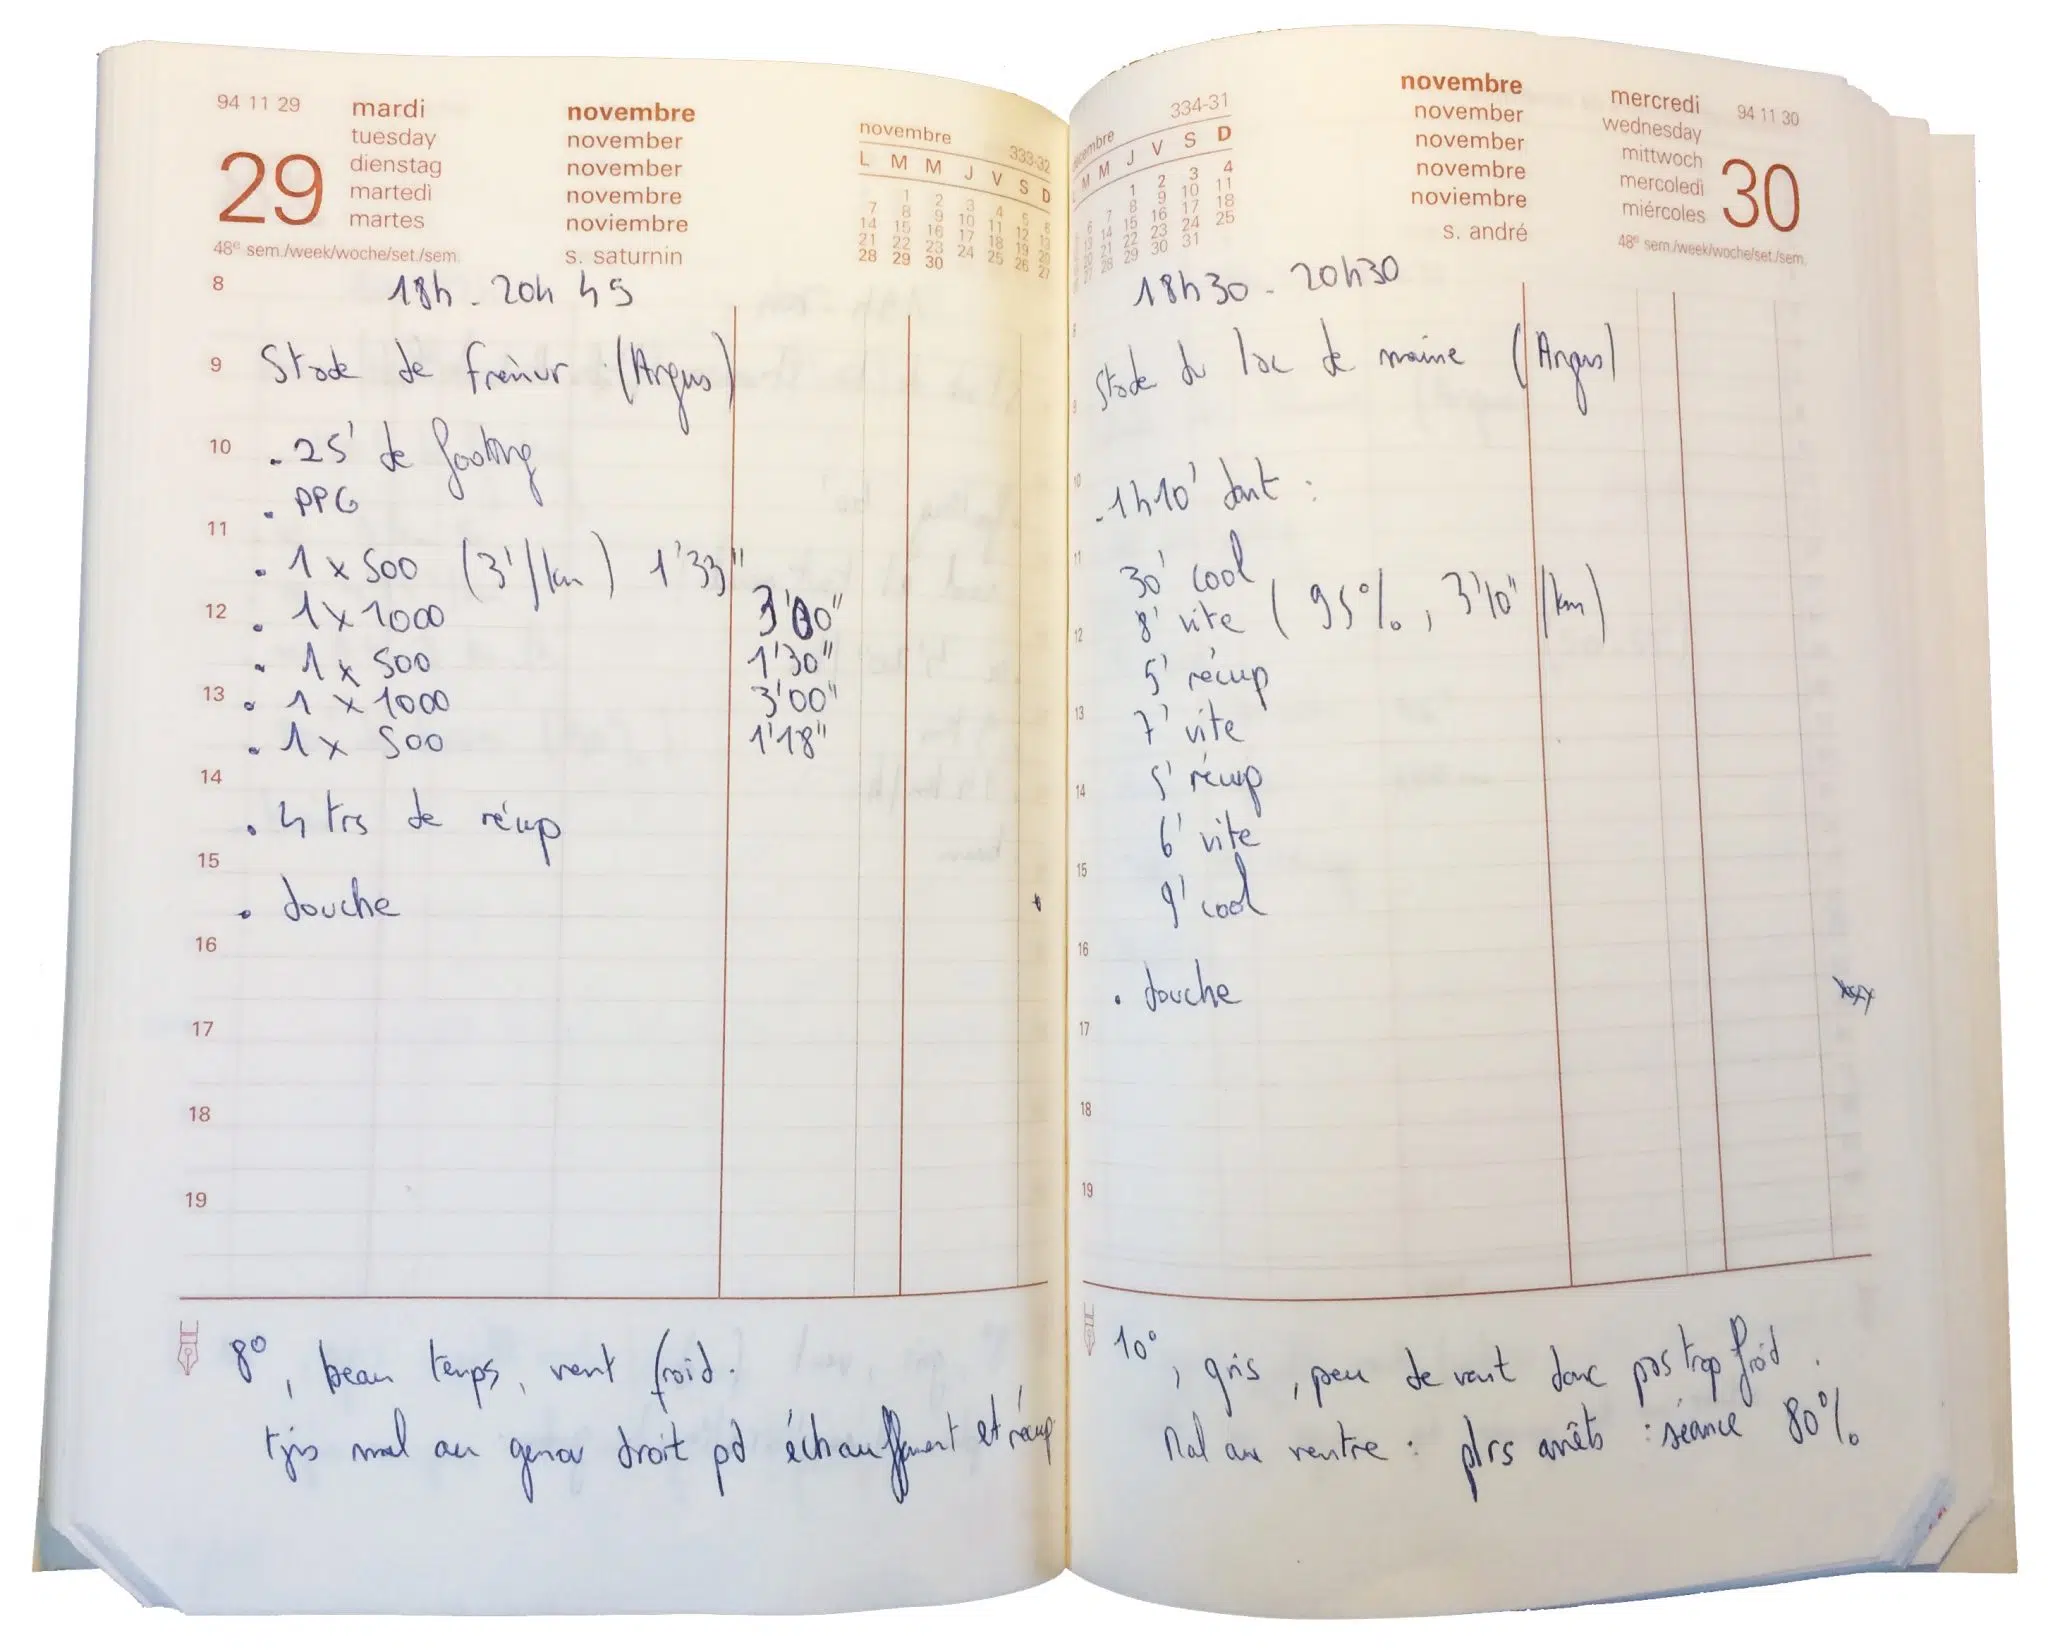 94 11 29
29
mardi
tuesday
dienstag
martedì
martes
novembre
november
november
novembre
noviembre
48e sem./week/woche/set./sem.
s. saturnin
novembre 333-32
L M M J V S D
1 2 3 4 5 6
7 8 9 10 11 12 13
14 15 16 17 18 19 20
21 22 23 24 25 26 27
28 29 30
8
18h - 20h 45
9 Stade de frémur (Argus)
10 . 25' de footing
. PPG
11
. 1 x 500 (3'/km) 1'33"
12 . 1 x 1000 3'00"
. 1 x 500 1'30"
13 . 1 x 1000 3'00"
. 1 x 500 1'18"
14
. 4 trs de récup
15
. douche
16
17
18
19
8°, beau temps, vent froid.
tjrs mal au genou droit pd échauffement et récup
décembre 334-31
L M M J V S D
1 2 3 4
6 7 8 9 10 11
13 14 15 16 17 18
20 21 22 23 24 25
27 28 29 30 31
novembre
november
november
novembre
noviembre
s. andré
mercredi
wednesday
mittwoch
mercoledì
miércoles
94 11 30
30
48e sem./week/woche/set./sem.
18h30 - 20h30
8
Stade du lac de maine (Argus)
9
10
. 1h10' dont :
11
30' cool
8' vite (95%, 3'10"/km)
12
5' récup
13 7' vite
5' récup
14
6' vite
15
9' cool
16
. douche
17
18
19
10°, gris, peu de vent donc pas trop froid.
Mal au ventre : plrs arrêts : séance 80%